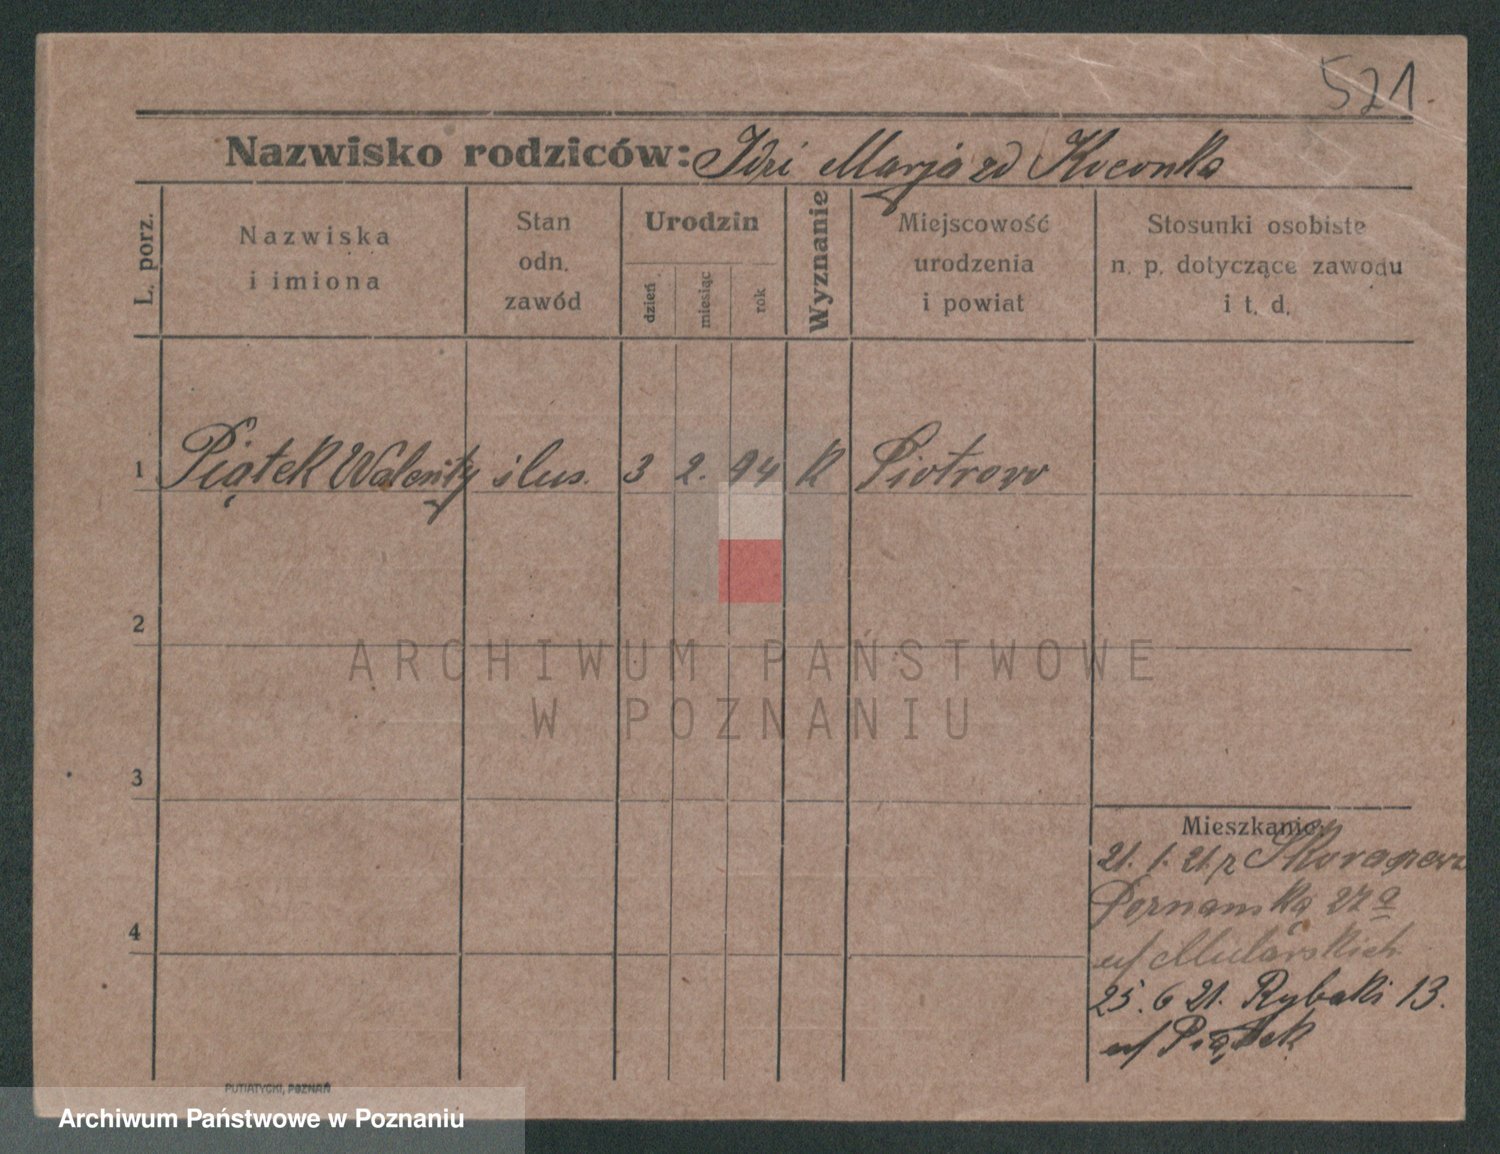 521.
Nazwisko rodziców: Idzi Marja zd Koconka
L. porz.
Nazwiska
i imiona
Stan
odn.
zawód
Urodzin
dzień
miesiąc
rok
Wyznanie
Miejscowość
urodzenia
i powiat
Stosunki osobiste
n. p. dotyczące zawodu
i t. d.
1 Piątek Walenty ślus. 3 2. 94 K Piotrowo
2
ARCHIWUM PAŃSTWOWE
W POZNANIU
3
4
Mieszkanie:
21. 1. 21. z
Poznańska 27a
25. 6 21. Rybaki 13.
u/ Piątek
PUTIATYCKI, POZNAŃ
Archiwum Państwowe w Poznaniu